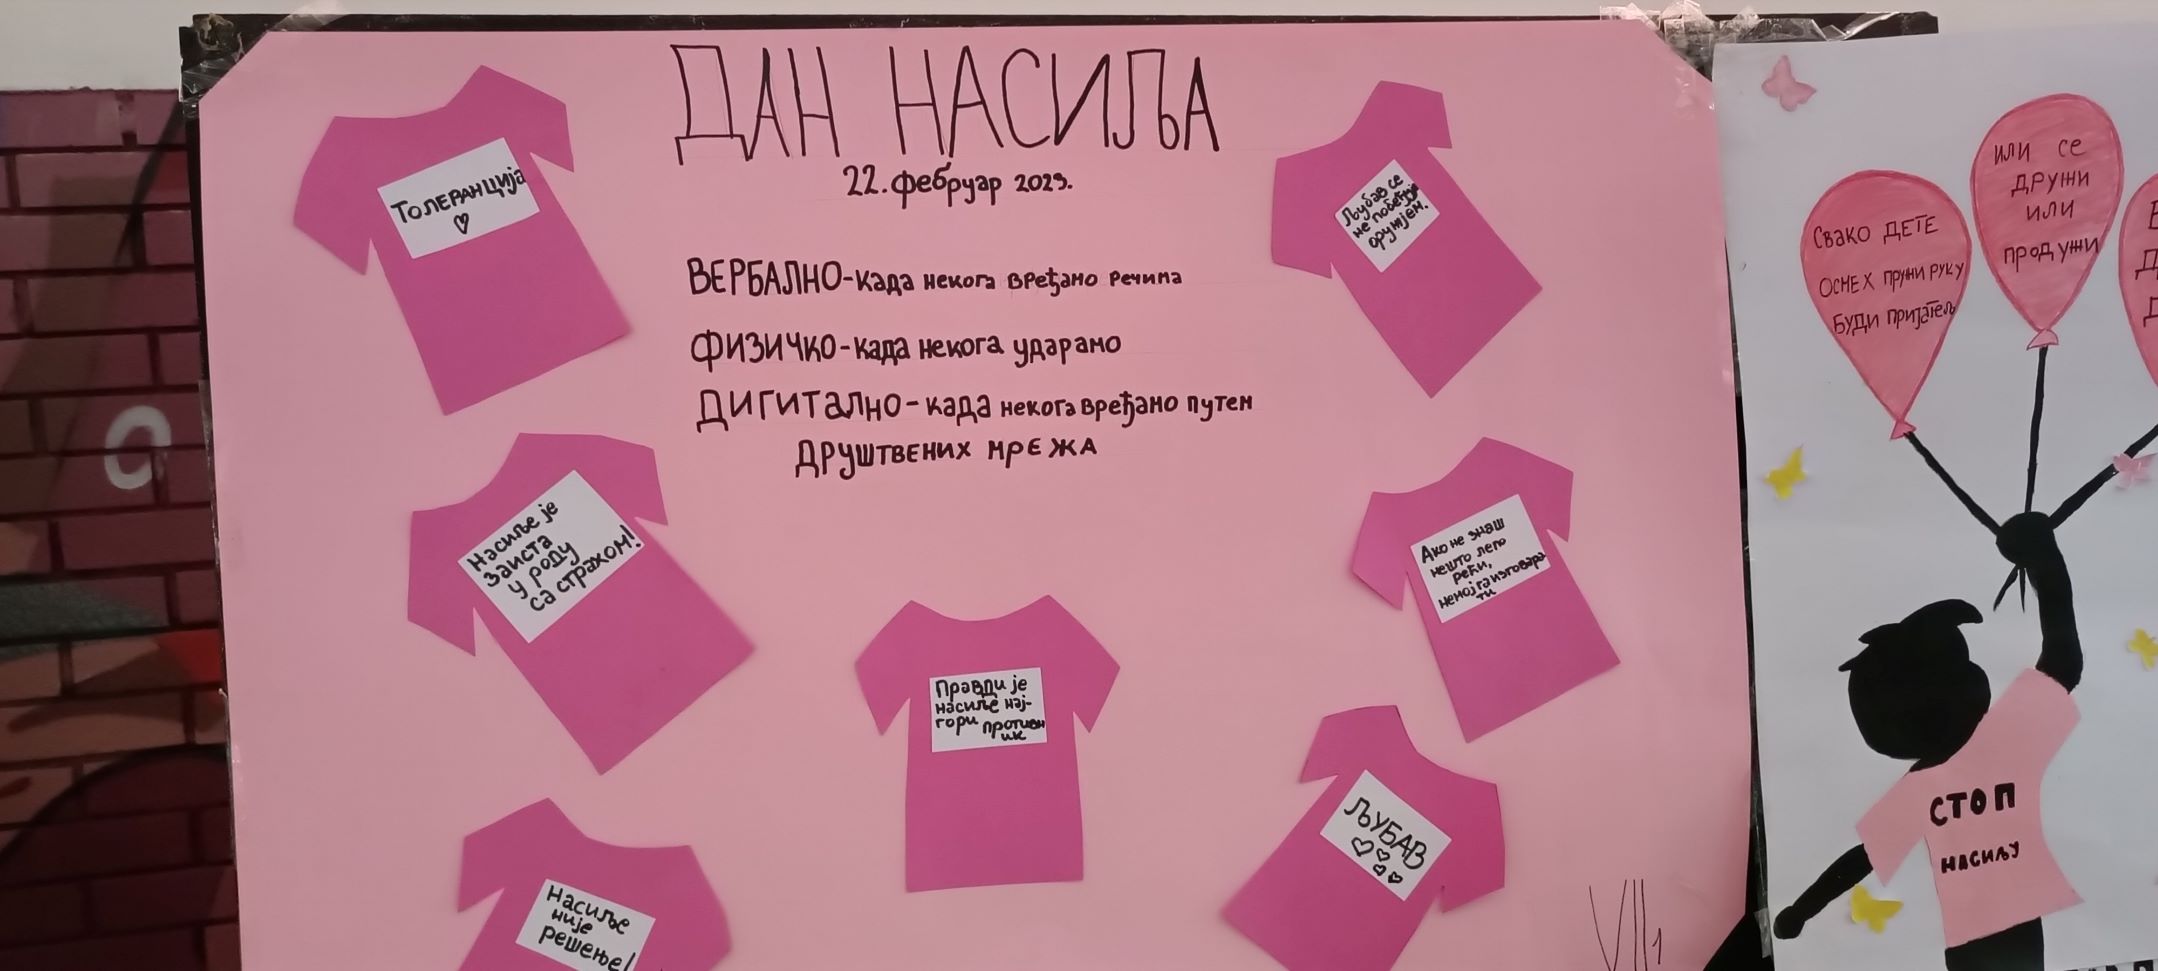 ДАН НАСИЉА
22. фебруар 2023.
ВЕРБАЛНО-када некога вређамо речима
ФИЗИЧКО-када некога ударамо
ДИГИТАЛНО-када некога вређамо путем
ДРУШТВЕНИХ МРЕЖА
ТОЛЕРАНЦИја
Насиље је
заиста
у роду
са страхом!
Насиље
није
решење!
Правди је
насиље нај-
гори противн
ик
Љубав се
не побеђује
оружјем.
Ако не знаш
нешто лепо
рећи,
немој га изговара
ти
ЉУБАВ
VII1
Свако ДЕТЕ
ОСМЕХ пружи руку
БУДИ пријатељ
или се
ДРУЖИ
или
продужи
СТОП
НАСИЉУ